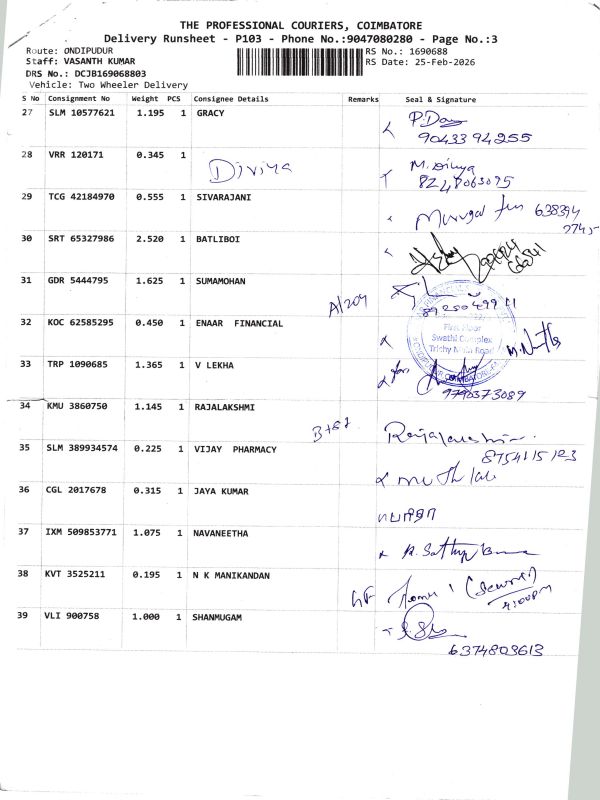 THE PROFESSIONAL COURIERS, COIMBATORE
Delivery Runsheet - P103 - Phone No.:9047080280 - Page No.:3
Route: ONDIPUDUR
RS No.: 1690688
Staff: VASANTH KUMAR
RS Date: 25-Feb-2026
DRS No.: DCJB169068803
Vehicle: Two Wheeler Delivery
S No Consignment No Weight PCS Consignee Details Remarks Seal & Signature
27 SLM 10577621 1.195 1 GRACY
9043394255
28 VRR 120171 0.345 1 Diviya
M. Diviya
8248063095
29 TCG 42184970 0.555 1 SIVARAJANI
Murugan 638394
30 SRT 65327986 2.520 1 BATLIBOI
31 GDR 5444795 1.625 1 SUMAMOHAN
A/204
32 KOC 62585295 0.450 1 ENAAR FINANCIAL
First Floor
Swathi Complex
Trichy Main Road
33 TRP 1090685 1.365 1 V LEKHA
for
9790373089
34 KMU 3860750 1.145 1 RAJALAKSHMI
Rajalakshmi
35 SLM 389934574 0.225 1 VIJAY PHARMACY
8754115123
36 CGL 2017678 0.315 1 JAYA KUMAR
37 IXM 509853771 1.075 1 NAVANEETHA
38 KVT 3525211 0.195 1 N K MANIKANDAN
39 VLI 900758 1.000 1 SHANMUGAM
6374803613